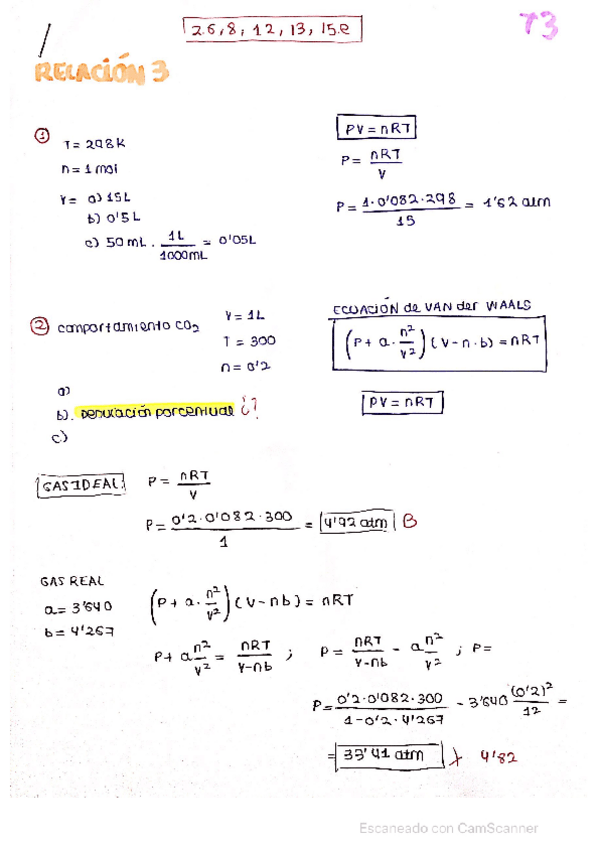 2.6, 8, 12, 13, 15.e
73
RELACIÓN 3
① T = 298K
n = 1 mol
V = a) 15L
b) 0'5L
c) 50 mL · 1L/1000mL = 0'05L
PV = nRT
P = nRT/V
P = 1·0'082·298/15 = 1'62 atm
② comportamiento CO₂
V = 1L
T = 300
n = 0'2
a)
b). desviación porcentual ¿?
c)
ECUACIÓN de VAN der WAALS
(P + a · n²/V²)(V - n · b) = nRT
PV = nRT
GAS IDEAL
P = nRT/V
P = 0'2·0'082·300/1 = 4'92 atm B
GAS REAL
a = 3'640
b = 4'267
(P + a · n²/V²)(V - nb) = nRT
P + a n²/V² = nRT/V-nb ; P = nRT/V-nb - a n²/V² ; P =
P = 0'2·0'082·300/1-0'2·4'267 - 3'640 (0'2)²/12 =
= 33'41 atm 4'82
Escaneado con CamScanner